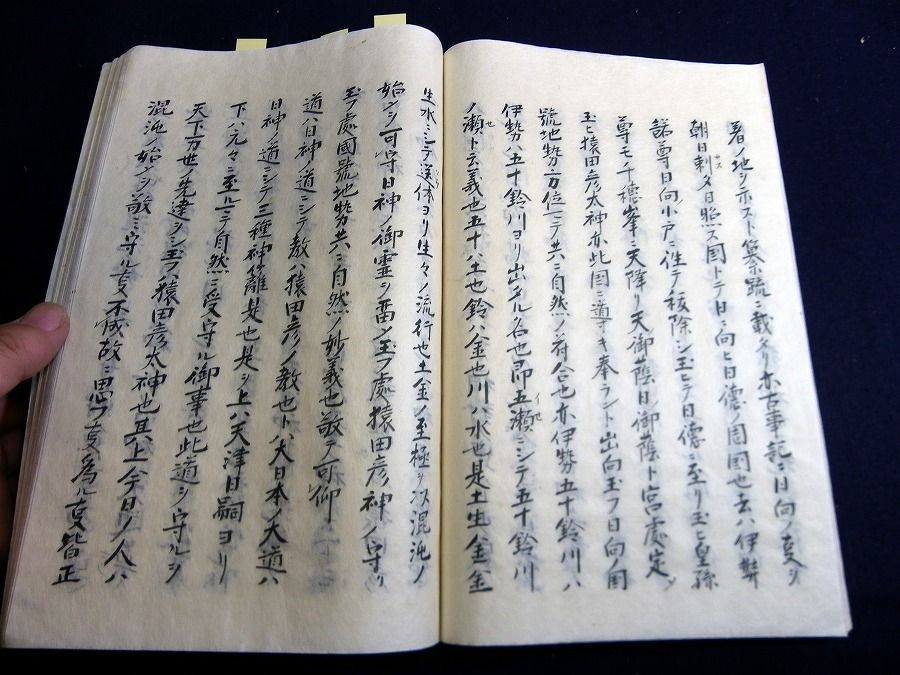 著ノ地ヲ示スト纂疏ニ載タリ亦古事記ニ日向ノ叓ヲ
朝日刺ス夕日照ス国トテ日ニ向ヒ日德ノ周国也去ハ伊弉
諾尊日向小戸ニ徃テ祓除シ玉ヒテ日德ニ至リ玉ヒ皇孫
尊モ千穂峯ニ天降リ天御蔭日御蔭ト宮處定
玉ヒ猿田彦大神亦此国ニ導キ奉ラント出向玉フ日向ノ国
號地勢方位ニテ共ニ自然ノ府合也亦伊勢五十鈴川ハ
伊勢ハ五十鈴川ヨリ出タル名也昂五瀬ニシテ五十鈴川
ノ瀬ト云義也五十ハ土也鈴ハ金也川ハ水也是土生金金
生水ニシテ送体ヨリ生々ノ流行也土金ノ至極ヲハ混沌ノ
始ヲシ可守日神ノ御霊ヲ畱メ玉フ處猿田彦神ノ守リ
玉フ處國號地勢共ニ自然ノ妙義也敬テ可仰
道ハ日神ノ道ニシテ教ハ猿田彦ノ教也ト八大日本ノ大道ハ
日神ノ道ニシテ三種神籬是也是ヲ上ハ天津日嗣ヨリ
下ハ元々ニ至ルニテ自然ニ受守ル御事也此道ヲ守ルヲ
天下万世ノ先達ヲシ玉フハ猿田彦大神也其上今日ノ人ハ
混沌ノ始ヲシ敬ミ守ル叓不成故ニ思フ叓為ル叓皆正